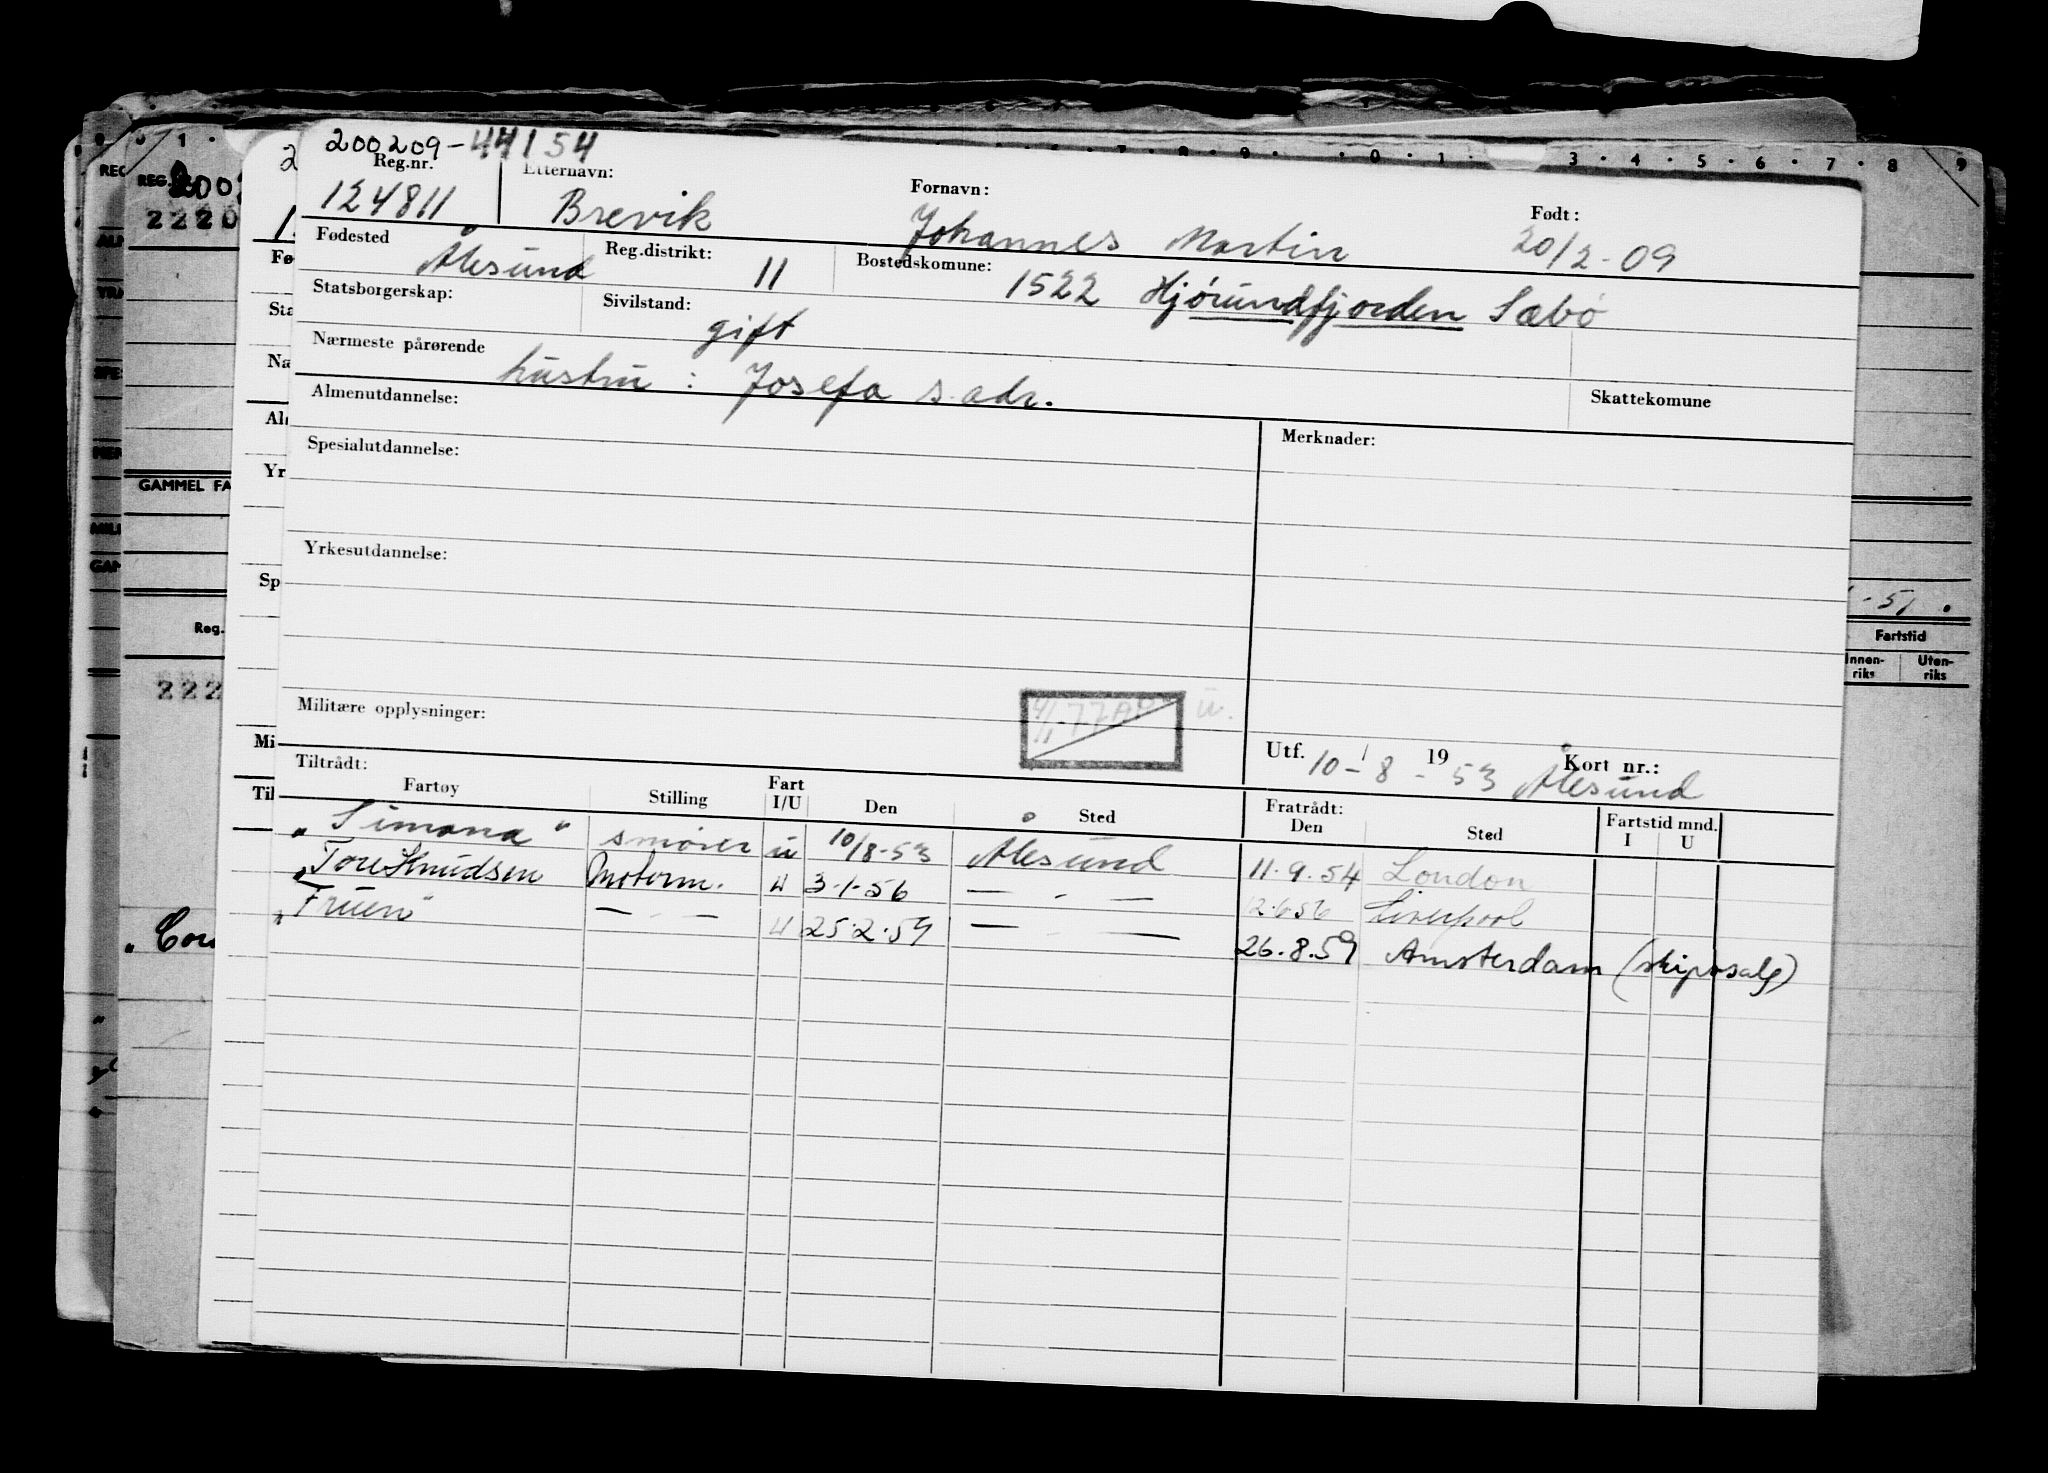 200209-44154
Reg.nr. Etternavn: Fornavn: Født:
124811 Brevik Johannes Martin 20/2-09
Fødested Reg.distrikt: Bostedskomune:
Ålesund 11 1522 Hjørundfjorden Sæbø
Statsborgerskap: Sivilstand:
gift
Nærmeste pårørende
hustru : Josefa s. adr.
Almenutdannelse: Skattekomune
Spesialutdannelse: Merknader:
Yrkesutdannelse:
Militære opplysninger:
Utf. 10-8-1953 Kort nr.: Ålesund
Tiltrådt: Fratrådt:
Fartøy Stilling Fart I/U Den Sted Den Sted Fartstid mnd. I U
"Simona" smører u 10/8-53 Ålesund 11.9.54 London
"Tore Knudsen Motorm. u 3-1-56 — - — 12.6.56 Liverpool
"Fruen" — - — u 25.2.59 — - — 26.8.59 Amsterdam (skipssalg)
GAMMEL FA
Reg.
222
-51.
Fartstid
Innen-riks Uten-riks